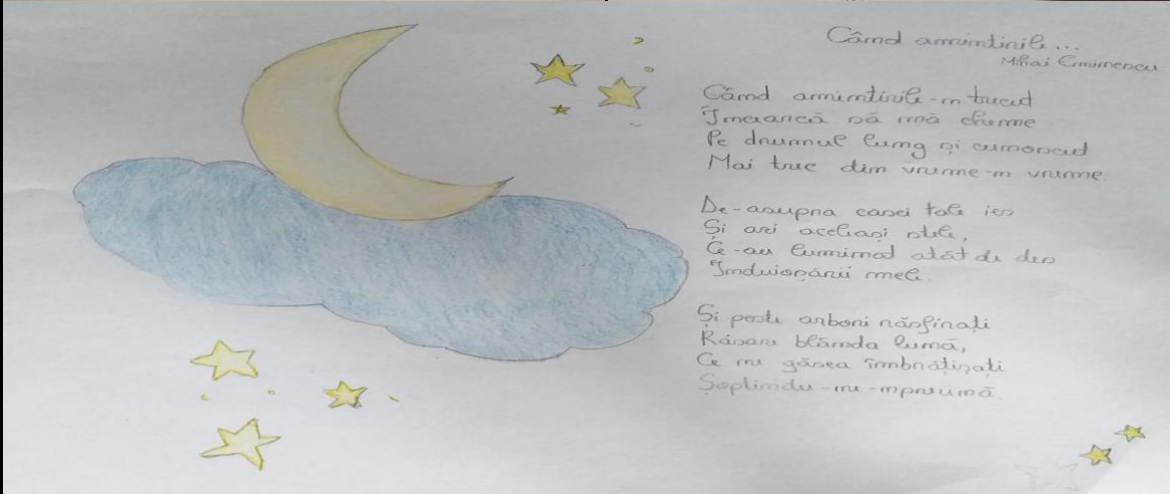 Când amintirile...
Mihai Eminescu
Când amintirile-n trecut
Încearcă să mă cheme
Pe drumul lung și cunoscut
Mai trec din vreme-n vreme.
De-asupra casei tale ies
Și azi aceleași stele,
Ce-au luminat atât de des
Înduioșării mele.
Și peste arbori răsfirați
Răsare blânda lună,
Ce ne găsea îmbrățișați
Șoptindu-ne-mpreună.